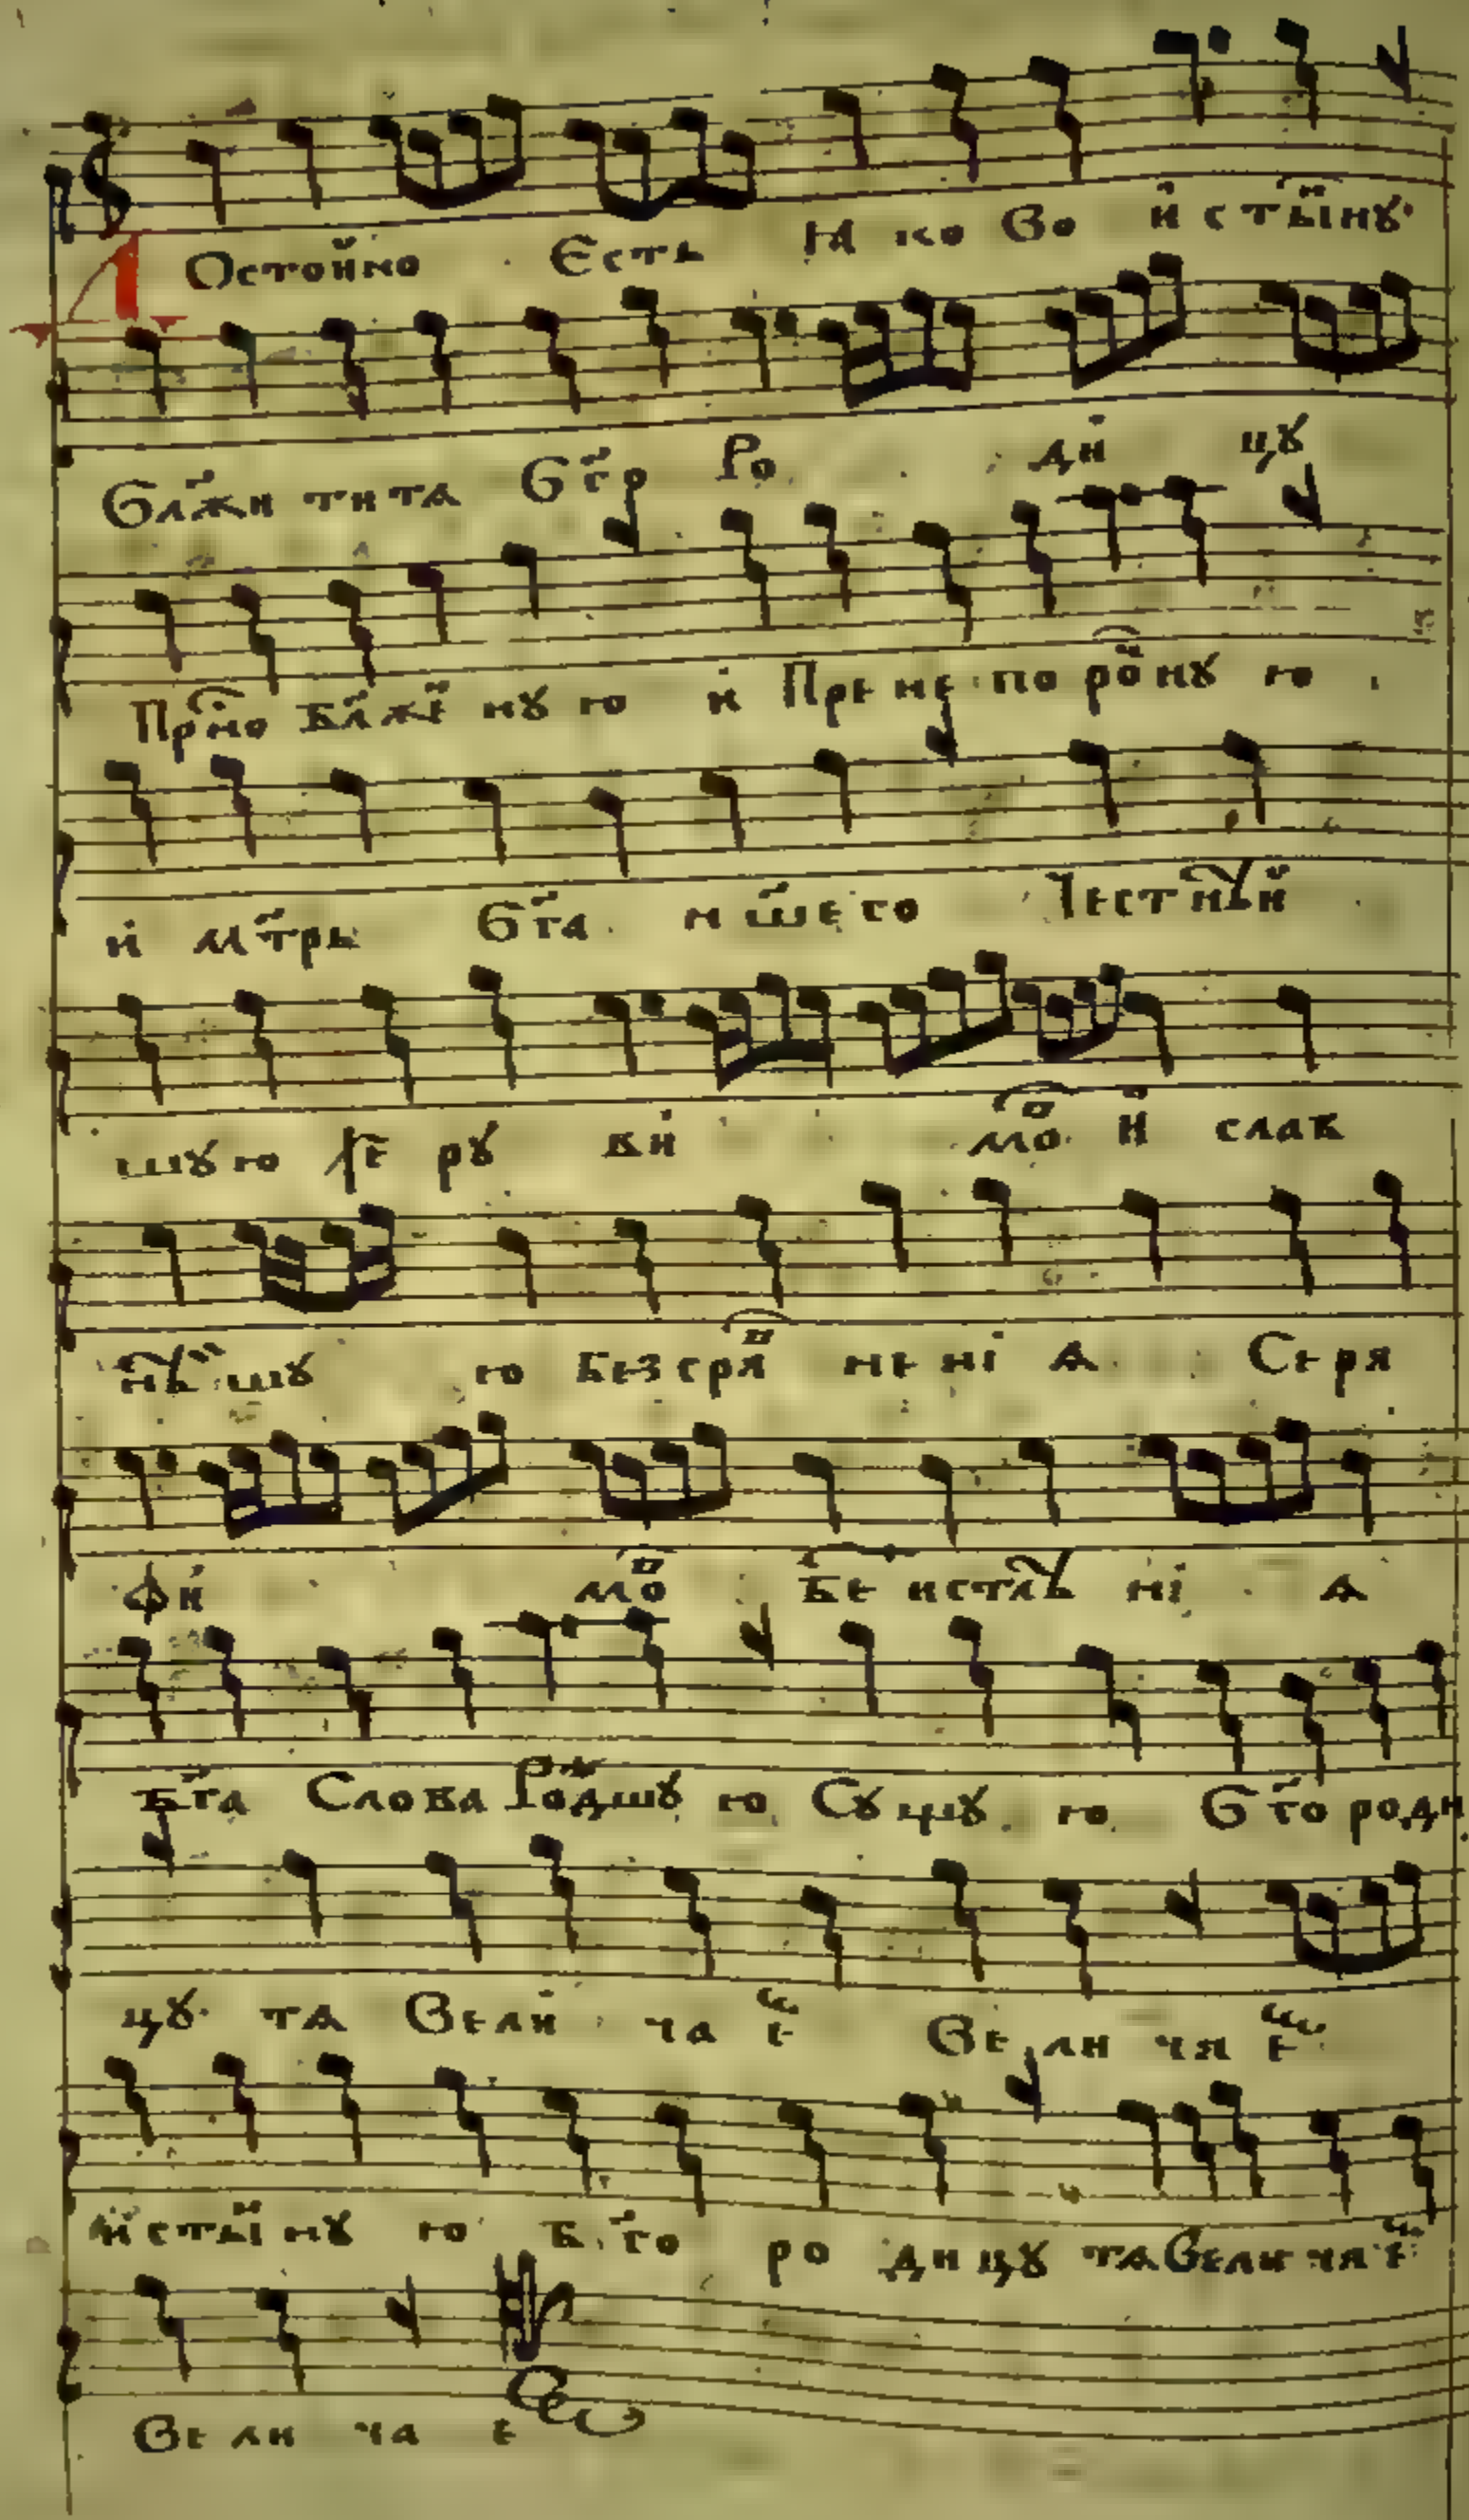 Достойно Єсть ꙗ ко Во и стынꙋ
Блжи ти тѧ Бгⷭ҇о Ро ди цꙋ
Прⷭ҇но Блже нꙋ ю и Пре не по роⷱ нꙋ ю
и Мтрь Бга нше го Чест нѣй
шꙋю Хе рꙋ ви моⷡ и слав
нѣй шꙋ ю Без сряⷡ не ні ѧ Серя
фи моⷡ Бе истлѣ ні ѧ
Бга Слова Рождшꙋ ю Сꙋ щꙋ ю Бго роди
цꙋ тѧ Вели ча еⷨ Ве ли чя еⷨ
истый нꙋ ю Б го ро ди цꙋ тѧ Вели чя еⷨ
Ве ли ча е